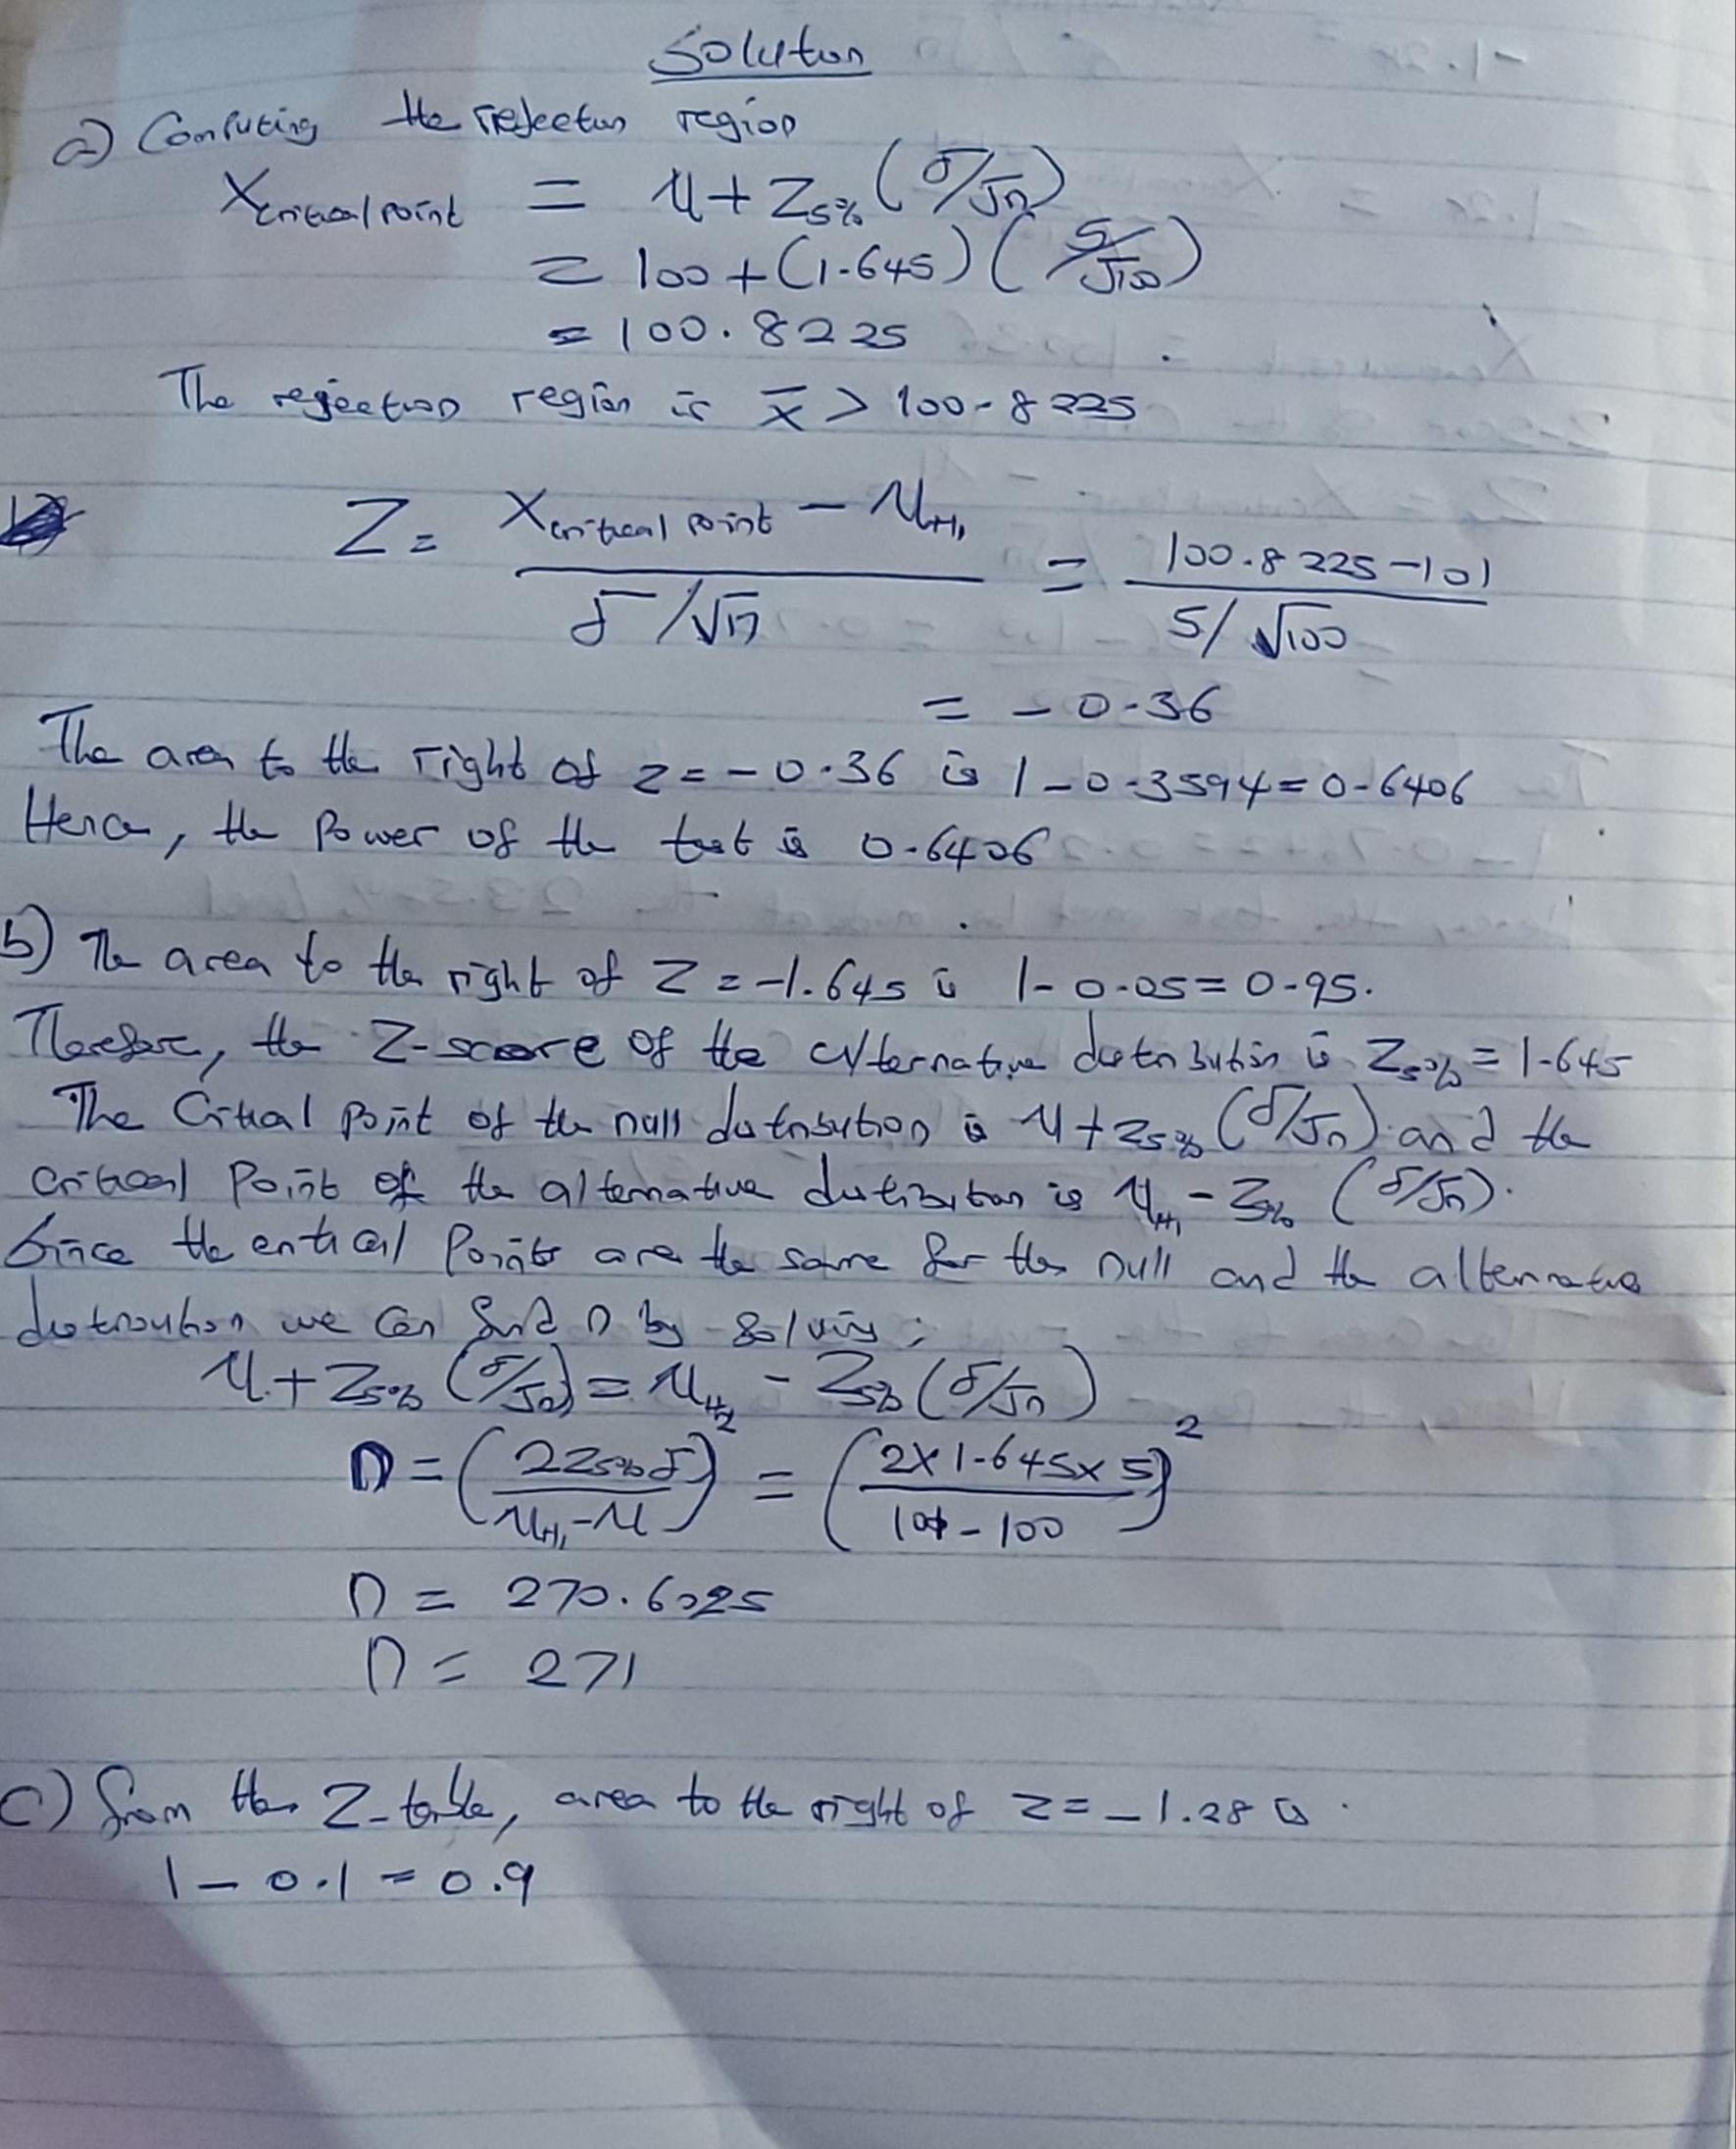 Soluton
a) Computing the rejection region
X critical point = μ + Z5% (σ/√n)
= 100 + (1.645) (5/√100)
= 100.8225
The rejection region is x̄ > 100.8225
Z = (X critical point − μH1) / (σ/√n) = (100.8225 − 101) / (5/√100)
= − 0.36
The area to the right of z = − 0.36 is 1 − 0.3594 = 0.6406
Hence, the power of the test is 0.6406
b) The area to the right of Z = −1.645 is 1 − 0.05 = 0.95.
Therefore, the Z-score of the alternative distribution is Z5% = 1.645
The Critical point of the null distribution is μ + z5% (σ/√n) and the
critical point of the alternative distribution is μH1 − Z5% (σ/√n).
Since the critical points are the same for the null and the alternative
distribution we can find n by solving;
μ + Z5% (σ/√n) = μH2 − Z5% (σ/√n)
n = (2Z5%σ / μH1 − μ)² = (2 × 1.645 × 5 / 101 − 100)²
n = 270.6025
n = 271
c) from the Z-table, area to the right of z = −1.28 is
1 − 0.1 = 0.9